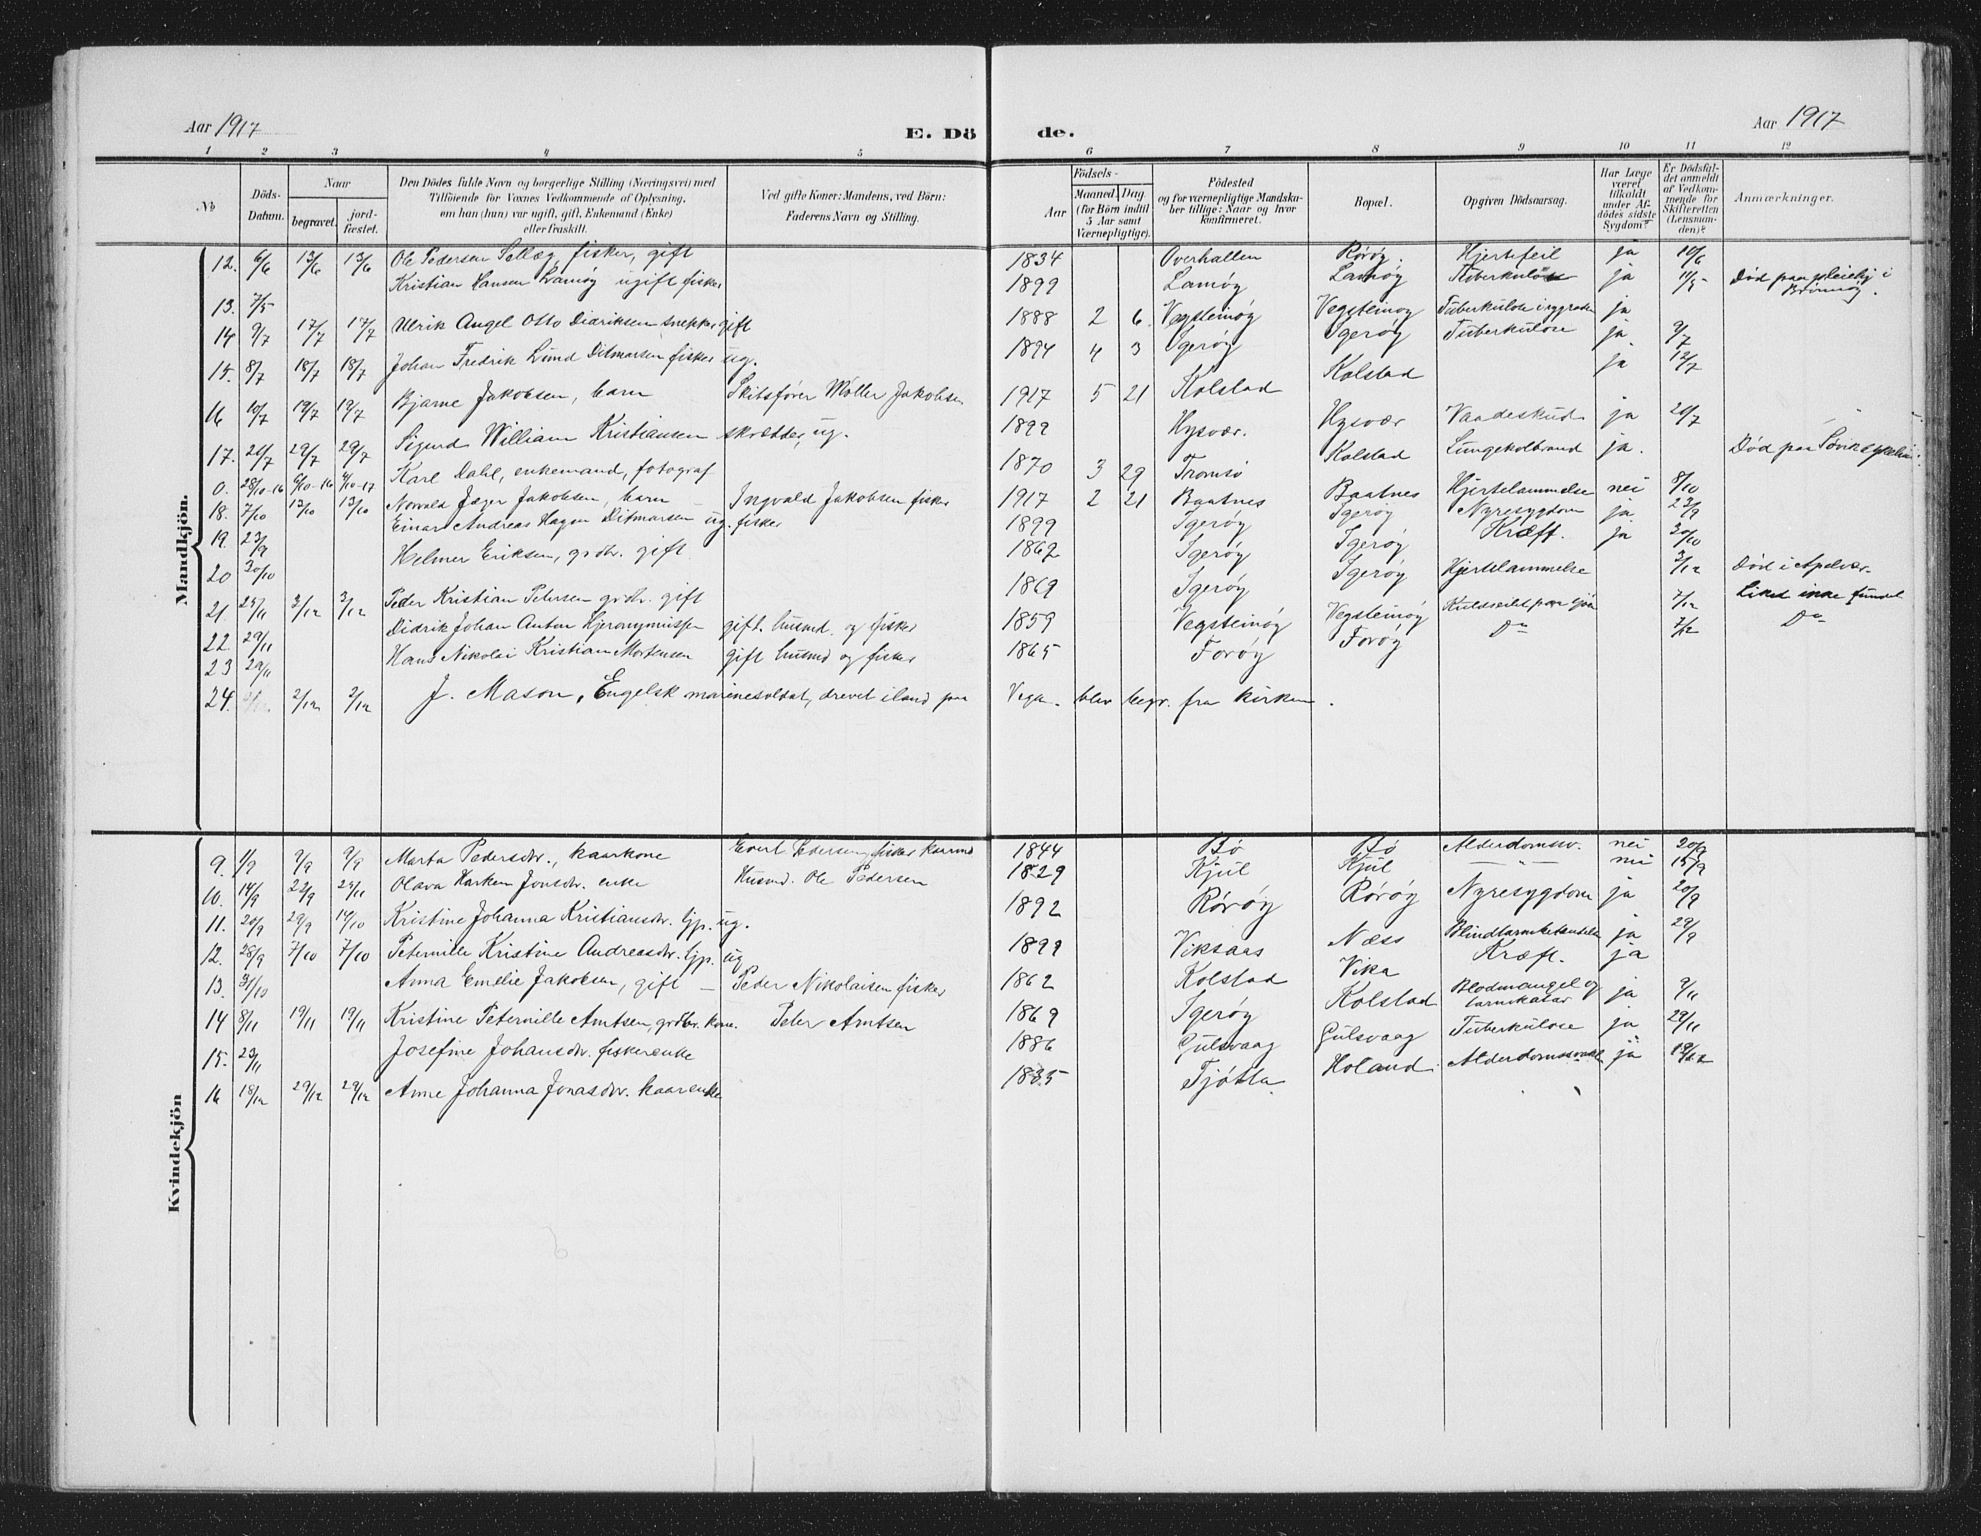 Aar 1917 E. Dö de. Aar 1917
1 2 3 4 5 6 7 8 9 10 11 12
No
Döds-Datum.
Naar
begravet.
jord-fæstet.
Den Dödes fulde Navn og borgerlige Stilling (Næringsvei) med
Tilföiende for Voxnes Vedkommende af Oplysning,
om han (hun) var ugift, gift, Enkemand (Enke)
eller fraskilt.
Ved gifte Koner: Mandens, ved Börn:
Faderens Navn og Stilling.
Födsels-
Aar
Maaned. Dag.
(for Börn indtil
5 Aar samt
Værnepligtige).
Födested
og for værnepligtige Mandska-
ber tillige: Naar og hvor
konfirmeret.
Bopæl.
Opgiven Dödsaarsag.
Har Læge
været
tilkaldt
under Af-
dödes sidste
Sygdom?
Er Dödsfal-
det anmeldt
af Vedkom-
mende for
Skifteretten
(Lensman-
den)?
Anmærkninger.
Mandkjön.
12. 6/6 13/6 13/6 Ole Pedersen Sellæg, fisker, gift 1834 Overhallen Rörög. Hjertefeil ja 10/6
13. 7/5 Kristian Hansen Lamög ugift fisker 1899 Lamög Lamög Tuberkulose ja 11/5 Död paa pleiehj i Brönnög.
14 9/7 17/7 17/7 Ulrik Angel Otto Didriksen snekker gift 1888 2 6 Vegsteinög Vegsteinög Tuberkulose i rygraden ja
15. 8/7 18/7 18/7 Johan Fredrik Lund Ditmarsen fisker ug. 1894 4 3 Igerög Igerög Tuberkulose ja. 9/7
16 10/7 19/7 19/7 Bjarne Jakobsen, barn Skibsförer Möller Jakobsen 1917 5 21 Kolstad Kolstad ja 12/7
17. 20/7 29/7 29/7 Sigurd William Kristiansen skrædder, ug. 1899 Hysvær. Hysvær Vaadeskud ja 20/7
0. 28/10-16 6/10-16 9/10-17 Karl Dahl, enkemand, fotograf 1870 3 29 Tromsö Kolstad Lungekolbrand ja. Död paa Sövik
18. 7/10 13/10 13/10 Norvald Jæger Jakobsen, barn Ingvald Jakobsen fisker 1917 2 21 Baatnes Baatnes Hjertelammelse nei 8/10
19. 23/9 Einar Andreas Hagen Ditmarsen ug. fisker 1899 Igerög Igerög Nyresygdom ja. 23/9
20 30/10 Helmer Eriksen, grdbr. gift 1862 Igerög Igerög Kræft. ja 30/10
21. 25/11 3/12 3/12 Peder Kristian Petersen grdbr. gift 1869 Igerög Igerög Hjertelammelse 3/12 Död i Apelvær.
22. 29/11 Didrik Johan Anton Hjeronymussen gift. husmd. og fisker 1859 Vegsteinög Vegsteinög Kuldseilet paa sjöen 7/12 Liket inke fundet
23 29/11 Hans Nikolai Kristian Mortensen gift husmd og fisker 1865 Forög Forög Do 7/12 Do
24. 2/12 2/12 J. Mason, Engelsk marinesoldat, drevet iland paa Vega. blev begr. fra kirken.
Kvindekjön
9. 1/9 9/9 9/9 Marta Pedersdtr., kaarkone Evert Pedersen, fisker kaarmd 1844 Bö Bö Alderdomssv. nei 20/9
10. 14/9 22/9 25/11 Olava Harken Jonsdtr. enke Husmd. Ole Pedersen 1829 Kjul Kjul — " — nei 15/9
11. 20/9 29/9 14/10 Kristine Johanna Kristiansdtr. tjp. ug. 1892 Rörög Rörög Nyresygdom ja 20/9
12. 28/9 7/10 7/10 Petermille Kristine Andreasdtr. tjp. ug 1899 Viksaas Næss Blindtarmbetændelse ja 29/9
13. 31/10 Anna Emelie Jakobsen, gift — Peder Nikolaisen fisker 1862 Kolstad Vika Kræft. ja
14 8/11 19/11 19/11 Kristine Petermille Arntsen, grdbr. kone. Peter Arntsen 1869 Igerög Kolstad Blodmangel og tarmkatar ja 9/11
15. 23/11 Josefine Johansdtr. fiskerenke 1886 Gulsvaag Gulsvaag Tuberkulose ja 29/11
16 18/12 29/12 29/12 Anne Johanna Jonasdtr. kaarenke 1835 Tjötta Holand Alderdomssvakh ja 19/12